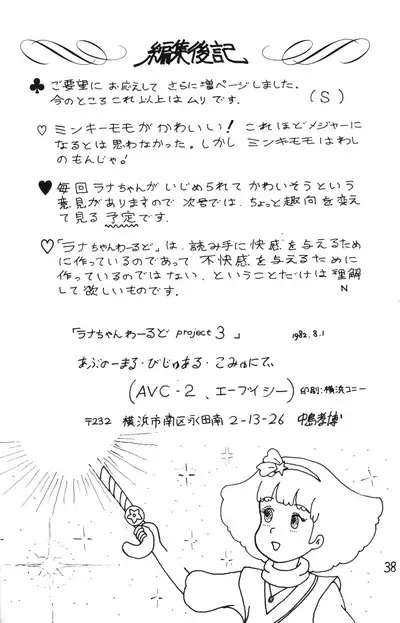 編集後記
♣ ご要望に お応えして さらに増ページしました。
今のところ これ以上は ムリ です。 (S)
♡ ミンキーモモが かわいい! これほどメジャーに
なるとは思わなかった。しかし ミンキーモモはわし
のもんじゃ!
♥ 毎回 ラナちゃんが いじめられて かわいそうという
意見がありますので 次号では、ちょっと趣向を変え
て見る 予定です。
♡ 「ラナちゃんわーるど」は、読み手に 快感 を与えるため
に作っているのであって 不快感を与えるために
作っているのでは ない、ということだけは 理解
して 欲しいものです。 N
「ラナちゃんわーるど project 3 」 1982.8.1
あぶのーまる・びじゅある・こみゅにてぃ
(AVC-2、エーブイシー) 印刷:横浜コニー
〒232 横浜市南区永田南 2-13-26 中島孝博
38